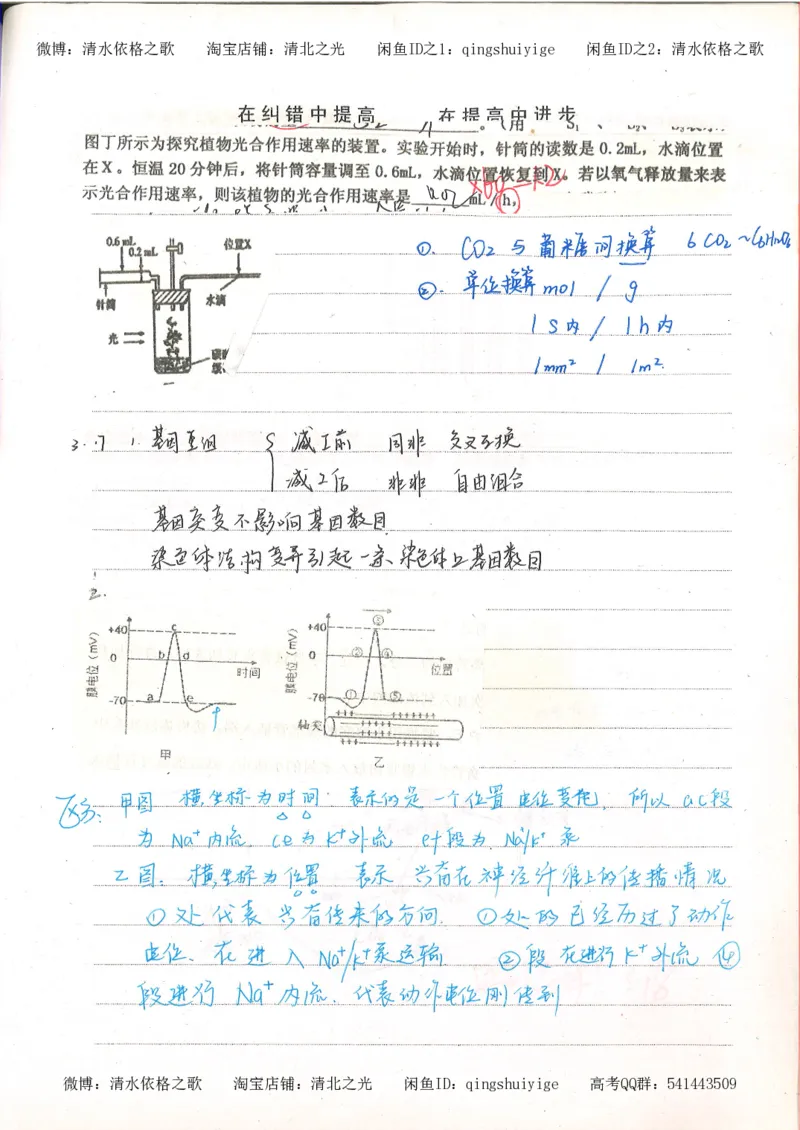 微博：清水依格之歌 淘宝店铺：清北之光 闲鱼ID之1：qingshuiyige 闲鱼ID之2：清水依格之歌
在纠错中提高 在提高中进步
图丁所示为探究植物光合作用速率的装置。实验开始时，针筒的读数是 0.2mL，水滴位置
在 X。恒温 20 分钟后，将针筒容量调至 0.6mL，水滴位置恢复到 X。若以氧气释放量来表
示光合作用速率，则该植物的光合作用速率是 mL / h，
0.6 mL
0.2 mL
位置X
针筒
水滴
光
①. CO2 与葡萄糖间换算 6 CO2 ~ C6H12O6
②. 单位换算 mol / g
1 s内 / 1h内
1mm² / 1m².
3.17 1. 基因重组 { 减Ⅰ前 同非 交叉互换
减Ⅰ后 非非 自由组合
基因突变不影响基因数目
染色体结构变异引起一条染色体上基因数目
2.
+40
0
-70
膜电位（mV）
a b c d e
时间
甲
+40
0
-70
膜电位（mV）
① ② ③ ④ ⑤
位置
轴突
乙
区分： 甲图 横坐标为时间 表示的是一个位置电位变化， 所以 ac段
为 Na⁺内流， ce为K⁺外流 ef段为 Na⁺/K⁺泵
乙图： 横坐标为位置 表示兴奋在神经纤维上的传播情况
①处代表兴奋传来的方向. ①处的已经历过了动作
电位、在进入 Na⁺/K⁺泵运输 ②段在进行K⁺外流 ④
段进行 Na⁺内流. 代表动作电位刚传到
微博：清水依格之歌 淘宝店铺：清北之光 闲鱼ID：qingshuiyige 高考QQ群：541443509